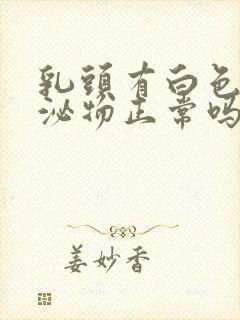 乳頭有白色
泌物正常嗎
姜妙香